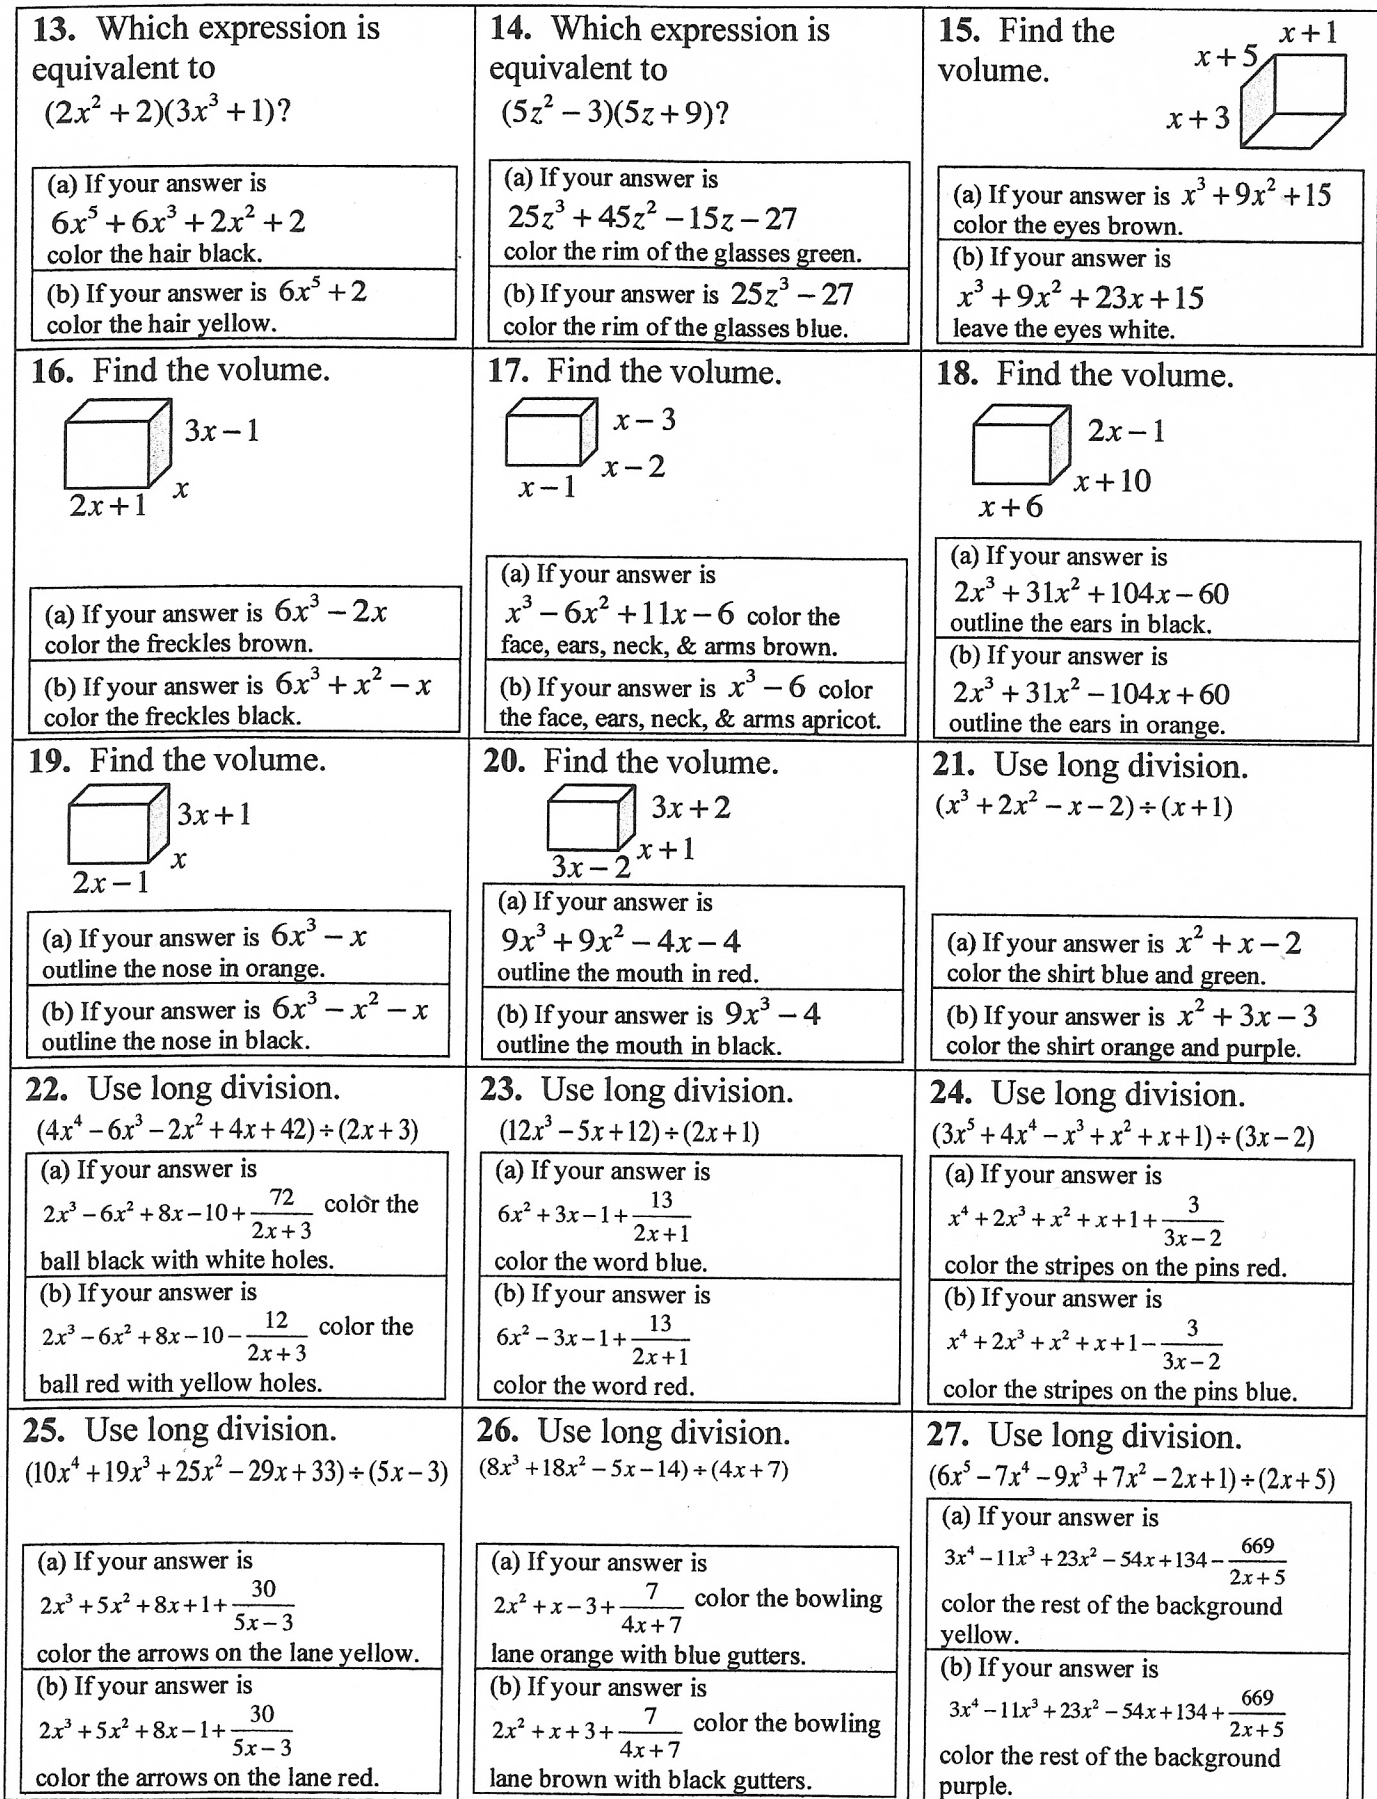 13. Which expression is
equivalent to
(2x² + 2)(3x³ + 1)?
(a) If your answer is
6x⁵ + 6x³ + 2x² + 2
color the hair black.
(b) If your answer is 6x⁵ + 2
color the hair yellow.
14. Which expression is
equivalent to
(5z² − 3)(5z + 9)?
(a) If your answer is
25z³ + 45z² − 15z − 27
color the rim of the glasses green.
(b) If your answer is 25z³ − 27
color the rim of the glasses blue.
15. Find the
volume.
x + 1
x + 5
x + 3
(a) If your answer is x³ + 9x² + 15
color the eyes brown.
(b) If your answer is
x³ + 9x² + 23x + 15
leave the eyes white.
16. Find the volume.
3x − 1
x
2x + 1
(a) If your answer is 6x³ − 2x
color the freckles brown.
(b) If your answer is 6x³ + x² − x
color the freckles black.
17. Find the volume.
x − 3
x − 2
x − 1
(a) If your answer is
x³ − 6x² + 11x − 6 color the
face, ears, neck, & arms brown.
(b) If your answer is x³ − 6 color
the face, ears, neck, & arms apricot.
18. Find the volume.
2x − 1
x + 10
x + 6
(a) If your answer is
2x³ + 31x² + 104x − 60
outline the ears in black.
(b) If your answer is
2x³ + 31x² − 104x + 60
outline the ears in orange.
19. Find the volume.
3x + 1
x
2x − 1
(a) If your answer is 6x³ − x
outline the nose in orange.
(b) If your answer is 6x³ − x² − x
outline the nose in black.
20. Find the volume.
3x + 2
x + 1
3x − 2
(a) If your answer is
9x³ + 9x² − 4x − 4
outline the mouth in red.
(b) If your answer is 9x³ − 4
outline the mouth in black.
21. Use long division.
(x³ + 2x² − x − 2) ÷ (x + 1)
(a) If your answer is x² + x − 2
color the shirt blue and green.
(b) If your answer is x² + 3x − 3
color the shirt orange and purple.
22. Use long division.
(4x⁴ − 6x³ − 2x² + 4x + 42) ÷ (2x + 3)
(a) If your answer is
2x³ − 6x² + 8x − 10 + 72/(2x + 3) color the
ball black with white holes.
(b) If your answer is
2x³ − 6x² + 8x − 10 − 12/(2x + 3) color the
ball red with yellow holes.
23. Use long division.
(12x³ − 5x + 12) ÷ (2x + 1)
(a) If your answer is
6x² + 3x − 1 + 13/(2x + 1)
color the word blue.
(b) If your answer is
6x² − 3x − 1 + 13/(2x + 1)
color the word red.
24. Use long division.
(3x⁵ + 4x⁴ − x³ + x² + x + 1) ÷ (3x − 2)
(a) If your answer is
x⁴ + 2x³ + x² + x + 1 + 3/(3x − 2)
color the stripes on the pins red.
(b) If your answer is
x⁴ + 2x³ + x² + x + 1 − 3/(3x − 2)
color the stripes on the pins blue.
25. Use long division.
(10x⁴ + 19x³ + 25x² − 29x + 33) ÷ (5x − 3)
(a) If your answer is
2x³ + 5x² + 8x + 1 + 30/(5x − 3)
color the arrows on the lane yellow.
(b) If your answer is
2x³ + 5x² + 8x − 1 + 30/(5x − 3)
color the arrows on the lane red.
26. Use long division.
(8x³ + 18x² − 5x − 14) ÷ (4x + 7)
(a) If your answer is
2x² + x − 3 + 7/(4x + 7) color the bowling
lane orange with blue gutters.
(b) If your answer is
2x² + x + 3 + 7/(4x + 7) color the bowling
lane brown with black gutters.
27. Use long division.
(6x⁵ − 7x⁴ − 9x³ + 7x² − 2x + 1) ÷ (2x + 5)
(a) If your answer is
3x⁴ − 11x³ + 23x² − 54x + 134 − 669/(2x + 5)
color the rest of the background
yellow.
(b) If your answer is
3x⁴ − 11x³ + 23x² − 54x + 134 + 669/(2x + 5)
color the rest of the background
purple.